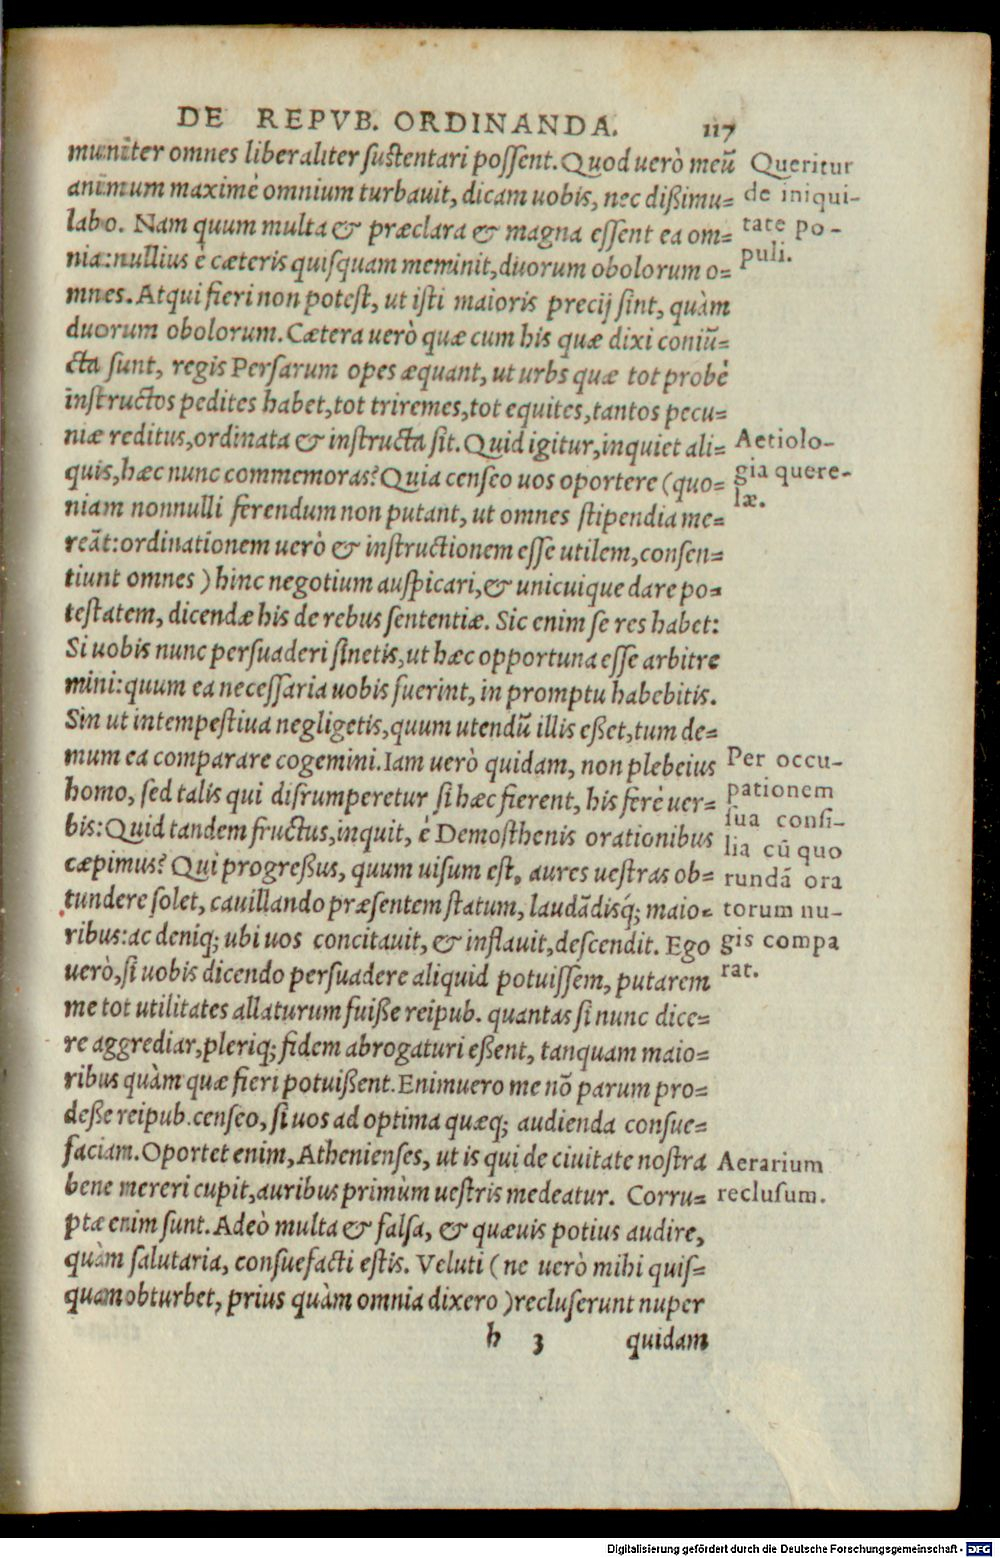 DE REPVB. ORDINANDA. 117
muniter omnes liberaliter sustentari possent. Quod uerò meũ
animum maximè omnium turbauit, dicam uobis, nec dißimu=
labo. Nam quum multa & præclara & magna essent ea om=
nia: nullius è cæteris quisquam meminit, duorum obolorum o=
mnes. Atqui fieri non potest, ut isti maioris precij sint, quàm
duorum obolorum. Cætera uerò quæ cum his quæ dixi coniũ=
cta sunt, regis Persarum opes æquant, ut urbs quæ tot probè
instructos pedites habet, tot triremes, tot equites, tantos pecu=
niæ reditus, ordinata & instructa sit. Quid igitur, inquiet ali=
quis, hæc nunc commemoras? Quia censeo uos oportere (quo=
niam nonnulli ferendum non putant, ut omnes stipendia me=
reãt: ordinationem uerò & instructionem esse utilem, consen=
tiunt omnes) hinc negotium auspicari, & unicuique dare po=
testatem, dicendæ his de rebus sententiæ. Sic enim se res habet:
Si uobis nunc persuaderi sinetis, ut hæc opportuna esse arbitre
mini: quum ea necessaria uobis fuerint, in promptu habebitis.
Sin ut intempestiua negligetis, quum utendũ illis eßet, tum de=
mum ea comparare cogemini. Iam uerò quidam, non plebeius
homo, sed talis qui disrumperetur si hæc fierent, his ferè uer=
bis: Quid tandem fructus, inquit, è Demosthenis orationibus
cæpimus? Qui progreßus, quum uisum est, aures uestras ob=
tundere solet, cauillando præsentem statum, laudãdisq; maio=
ribus: ac deniq; ubi uos concitauit, & inflauit, descendit. Ego
uerò, si uobis dicendo persuadere aliquid potuissem, putarem
me tot utilitates allaturum fuiße reipub. quantas si nunc dice=
re aggrediar, pleriq; fidem abrogaturi eßent, tanquam maio=
ribus quàm quæ fieri potuißent. Enimuero me nõ parum pro=
deße reipub. censeo, si uos ad optima quæq; audienda consue=
faciam. Oportet enim, Athenienses, ut is qui de ciuitate nostra
bene mereri cupit, auribus primùm uestris medeatur. Corru=
ptæ enim sunt. Adeò multa & falsa, & quæuis potius audire,
quàm salutaria, consuefacti estis. Veluti (ne uerò mihi quis=
quam obturbet, prius quàm omnia dixero) recluserunt nuper
h 3 quidam
Queritur
de iniqui-
tate po-
puli.
Aetiolo-
gia quere-
læ.
Per occu-
pationem
sua consi-
lia cũ quo
rundã ora
torum nu-
gis compa
rat.
Aerarium
reclusum.
Digitalisierung gefördert durch die Deutsche Forschungsgemeinschaft - DFG